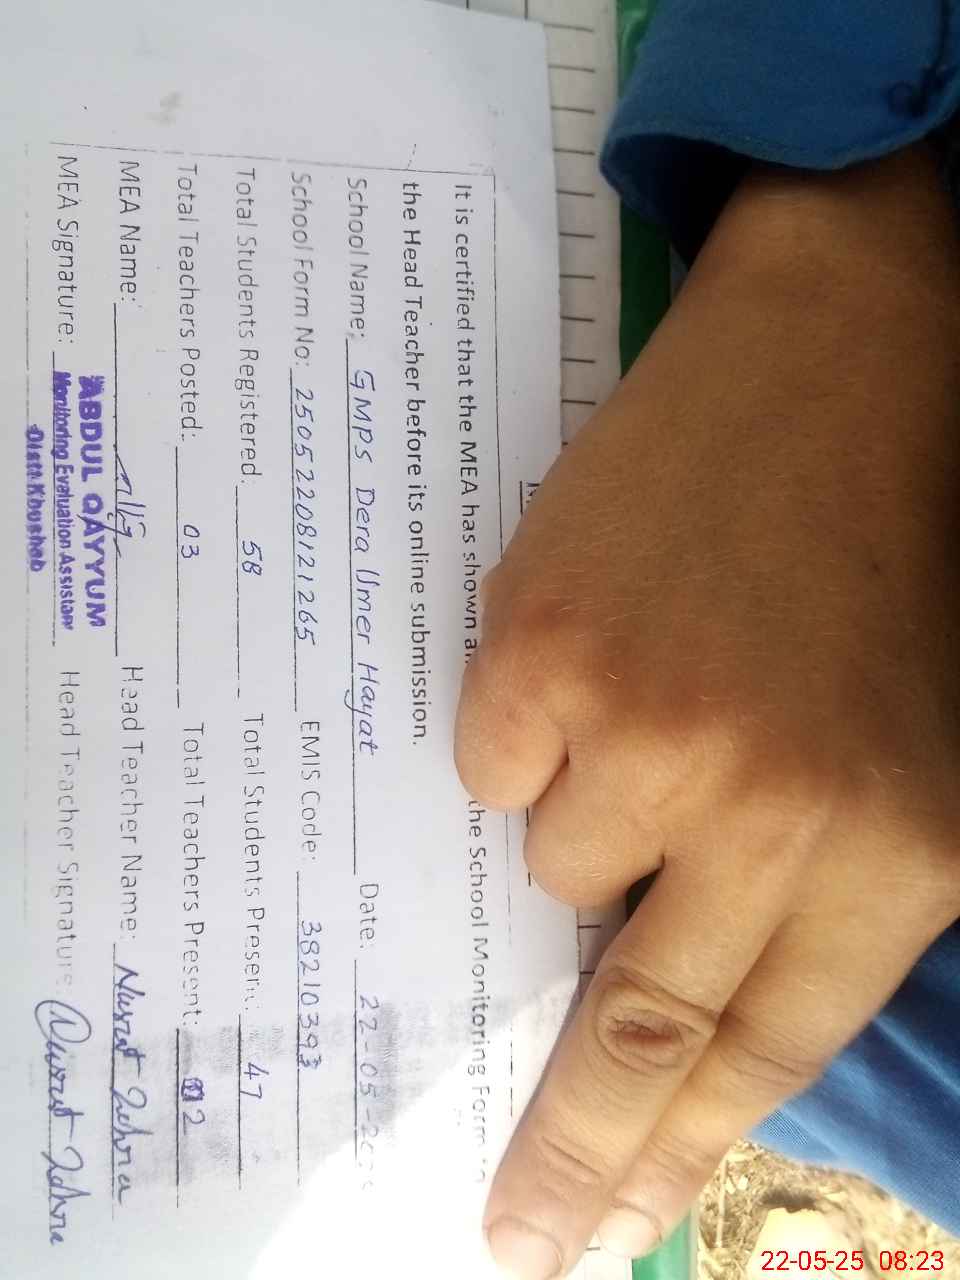 It is certified that the MEA has shown the School Monitoring Form to
the Head Teacher before its online submission.
School Name: GMPS Dera Umer Hayat Date: 22-05-2025
School Form No: 25052208121265 EMIS Code: 38210393
Total Students Registered: 58 Total Students Present: 47
Total Teachers Posted: 03 Total Teachers Present: 02
MEA Name: Head Teacher Name: Nusrat Zahra
MEA Signature: Head Teacher Signature: Nusrat Zahra
ABDUL QAYYUM
Monitoring Evaluation Assistant
Distt. Khushab
22-05-25 08:23